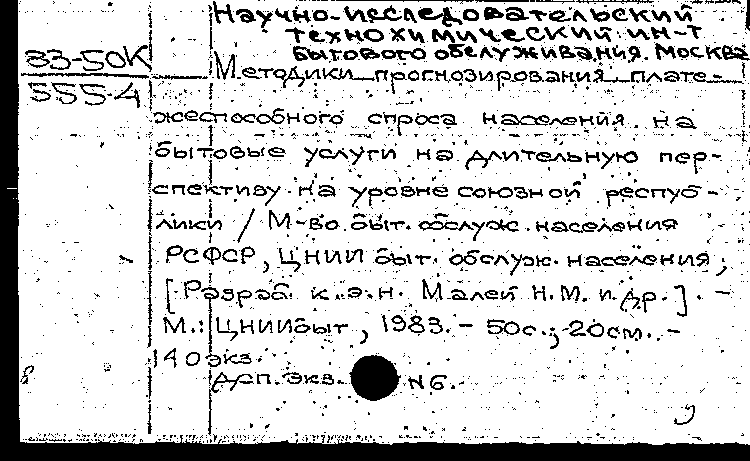 Научно-исследовательский
технохимический ин-т
бытового обслуживания. Москва
83-50К
555-4
Методики прогнозирования плате-
жеспособного спроса населения на
бытовые услуги на длительную пер-
спективу на уровне союзной респуб-
лики / М-во быт. обслуж. населения
РСФСР, ЦНИИ быт. обслуж. населения;
[Разраб. к.э.н. Малей Н.М. и др.]. -
М.: ЦНИИбыт, 1983. - 50с.; 20см. -
140экз.
Деп. экз. N6.